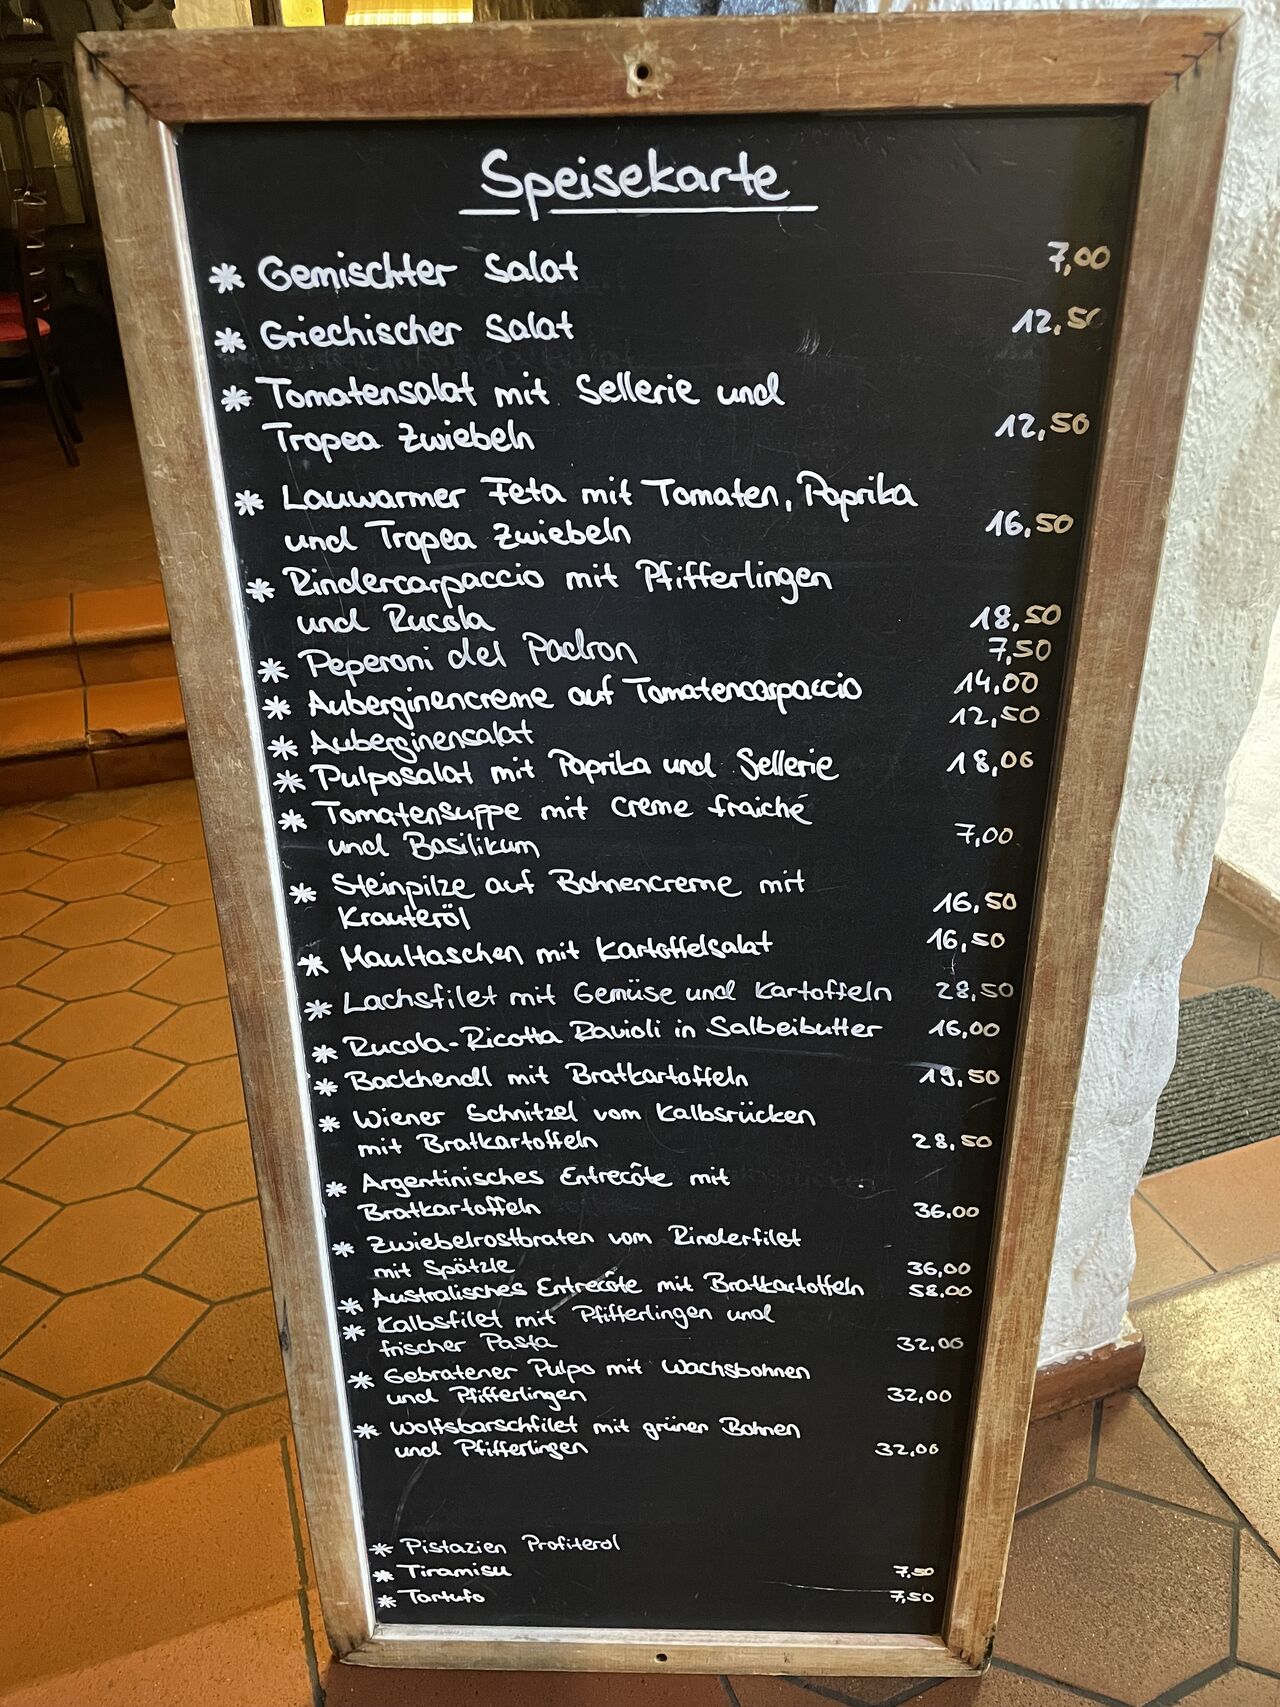 Speisekarte
* Gemischter Salat 7,00
* Griechischer Salat 12,50
* Tomatensalat mit Sellerie und
Tropea Zwiebeln 12,50
* Lauwarmer Feta mit Tomaten, Paprika
und Tropea Zwiebeln 16,50
* Rindercarpaccio mit Pfifferlingen
und Rucola 18,50
* Peperoni del Padron 7,50
* Auberginencreme auf Tomatencarpaccio 14,00
* Auberginensalat 12,50
* Pulposalat mit Paprika und Sellerie 18,00
* Tomatensuppe mit creme fraiché
und Basilikum 7,00
* Steinpilze auf Bohnencreme mit
Krauteröl 16,50
* Maultaschen mit Kartoffelsalat 16,50
* Lachsfilet mit Gemüse und Kartoffeln 28,50
* Rucola-Ricotta Ravioli in Salbeibutter 16,00
* Backhendl mit Bratkartoffeln 19,50
* Wiener Schnitzel vom Kalbsrücken
mit Bratkartoffeln 28,50
* Argentinisches Entrecôte mit
Bratkartoffeln 36.00
* Zwiebelrostbraten vom Rinderfilet
mit Spätzle 36,00
* Australisches Entrecôte mit Bratkartoffeln 58,00
* Kalbsfilet mit Pfifferlingen und
frischer Pasta 32,00
* Gebratener Pulpo mit Wachsbohnen
und Pfifferlingen 32,00
* Wolfsbarschfilet mit grünen Bohnen
und Pfifferlingen 32,00
* Pistazien Profiterol
* Tiramisu 7,50
* Tartufo 7,50